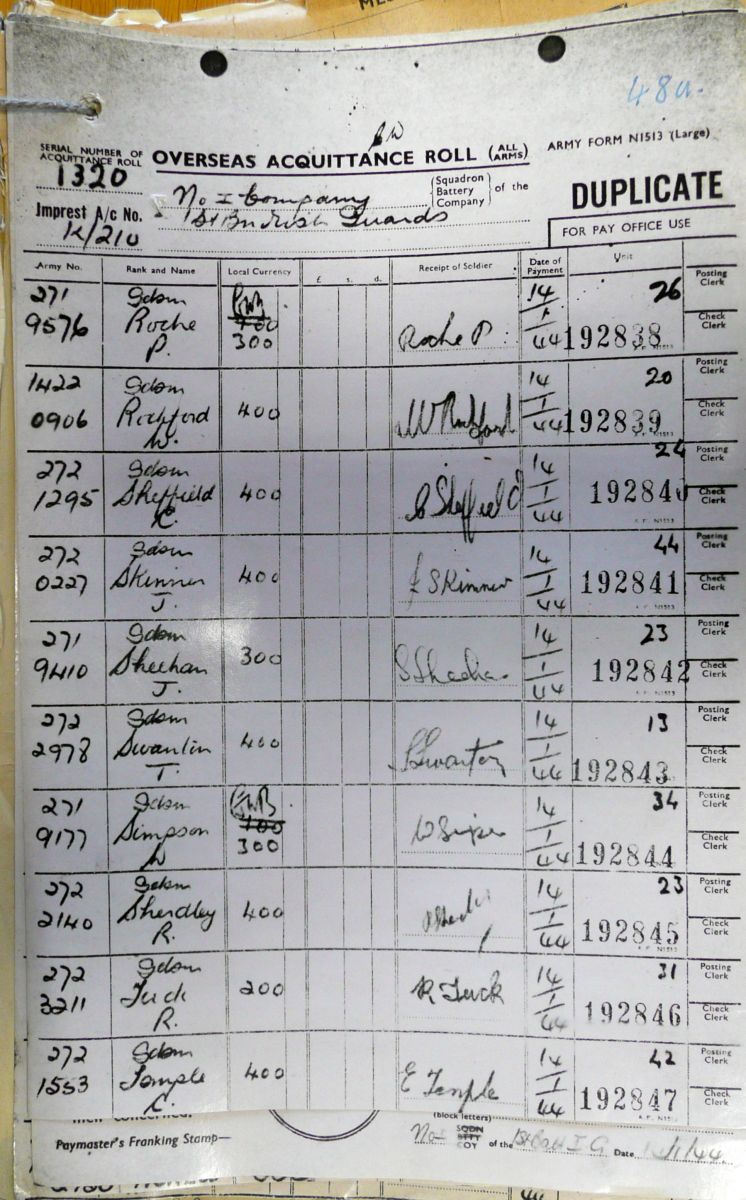 48a.
SERIAL NUMBER OF
ACQUITTANCE ROLL
1320
OVERSEAS ACQUITTANCE ROLL (ALL ARMS)
ARMY FORM N1513 (Large)
Imprest A/c No.
K/210
No I Company
Squadron
Battery
Company
of the
1st Bn Irish Guards
DUPLICATE
FOR PAY OFFICE USE
Army No. Rank and Name Local Currency £ s. d. Receipt of Soldier Date of Payment Unit Posting Clerk
271 Gdsm 14 26
9576 Roche 400 1 Check Clerk
P. 300 Roche P 44 192838
1422 Gdsm 14 20 Posting Clerk
0906 Rochford 400 W Rochford 1 Check Clerk
W. 44 192839
272 Gdsm 14 24 Posting Clerk
1295 Sheffield 400 Sheffield 1 192840 Check Clerk
44
272 Gdsm 14 44 Posting Clerk
0227 Skinner 400 J Skinner 1 192841 Check Clerk
J. 44
271 Gdsm 14 23 Posting Clerk
9410 Sheehan 300 1 192842 Check Clerk
J. 44
272 Gdsm 14 13 Posting Clerk
2978 400 1 Check Clerk
T. 44 192843
271 Gdsm 14 34 Posting Clerk
9177 Simpson 400 1 Check Clerk
W 300 44 192844
272 Gdsm 14 23 Posting Clerk
2140 Sherdley 400 1 192845 Check Clerk
R. 44
272 Gdsm 14 31 Posting Clerk
3211 Tuck 200 R Tuck 1 192846 Check Clerk
R. 44
272 Gdsm 14 42 Posting Clerk
1553 Temple 400 E Temple 1 192847 Check Clerk
44
men concerned.
(block letters)
Paymaster's Franking Stamp—
No I SQDN BTTY COY of the 1st Bn I G Date 14/1/44